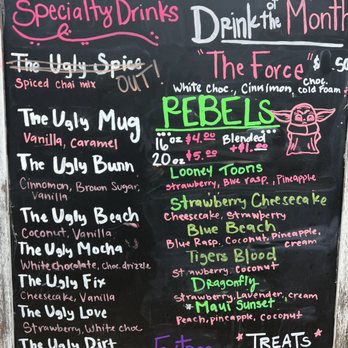 Specialty Drinks
The Ugly Spice
OUT!
Spiced chai mix
The Ugly Mug
Vanilla, Caramel
The Ugly Bunn
Cinnomon, Brown Sugar,
Vanilla
The Ugly Beach
Coconut, Vanilla
The Ugly Mocha
White chocolate, choc. drizzle
The Ugly Fix
Cheesecake, Vanilla
The Ugly Love
Strawberry, White choc
The Ugly Dirt
Drink of the Month
"The Force" $ 50
White choc., Cinnimon, choc. cold foam
REBELS
16 oz $4.00 Blended
20 oz $5.00 +$1.00
Looney Toons
Strawberry, Blue rasp., Pineapple
Strawberry Cheesecake
Cheesecake, Strawberry
Blue Beach
Blue Rasp. Coconut, Pineapple,
cream
Tigers Blood
Strawberry, coconut
Dragonfly
Strawberry, Lavender, cream
*Maui Sunset*
Peach, pineapple, coconut
*TREATS*